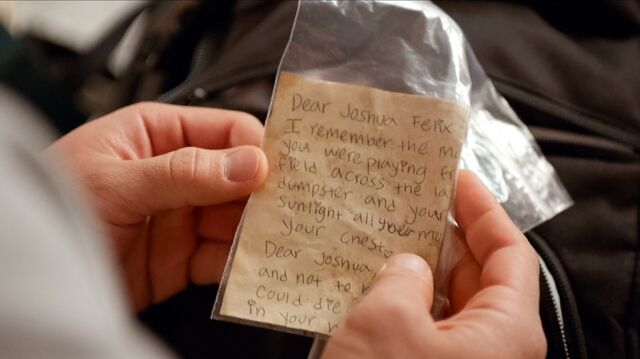 Dear Joshua Felix
I remember the
you were playing
field across the
dumpster and your
sunlight all
your chest
Dear Joshua,
and not to
Could die
in your